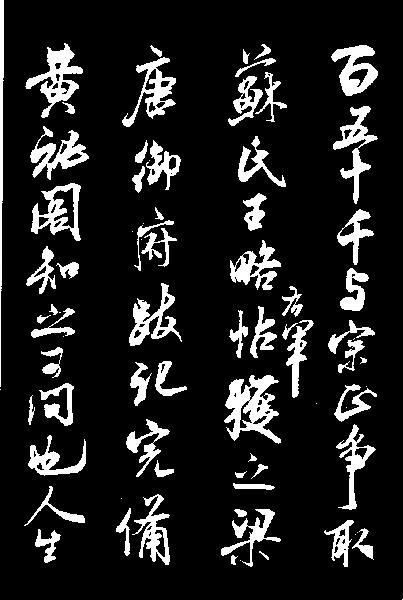 百五十千与宗正争取
右軍
蘇氏王略帖獲之梁
唐御府跋記完備
黄秘閣知之可問也人生